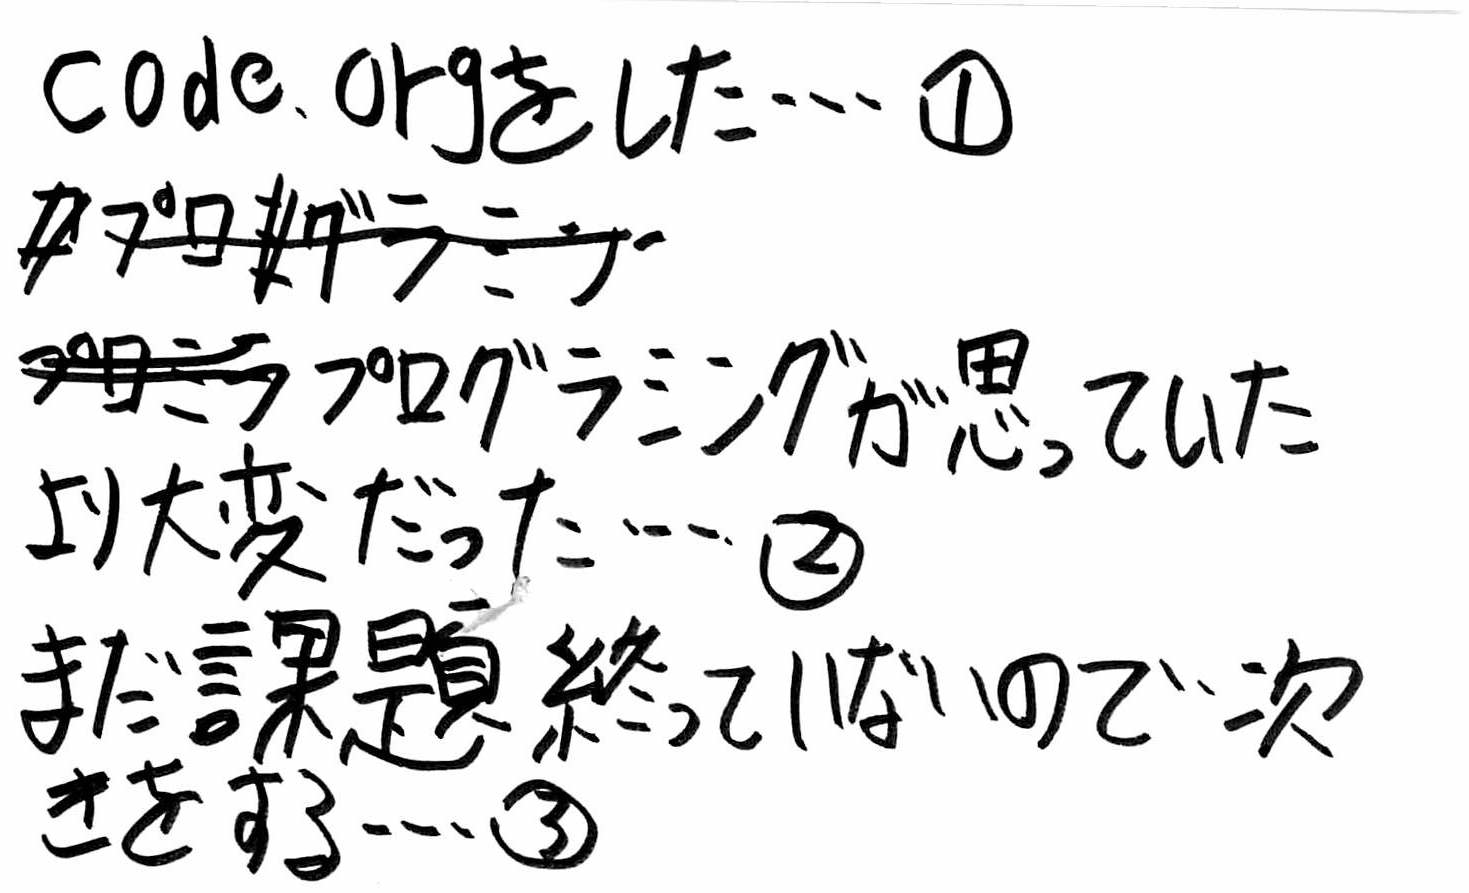 code.orgをした…①
プログラミングが思っていた
より大変だった…②
まだ課題終っていないので次
きをする…③